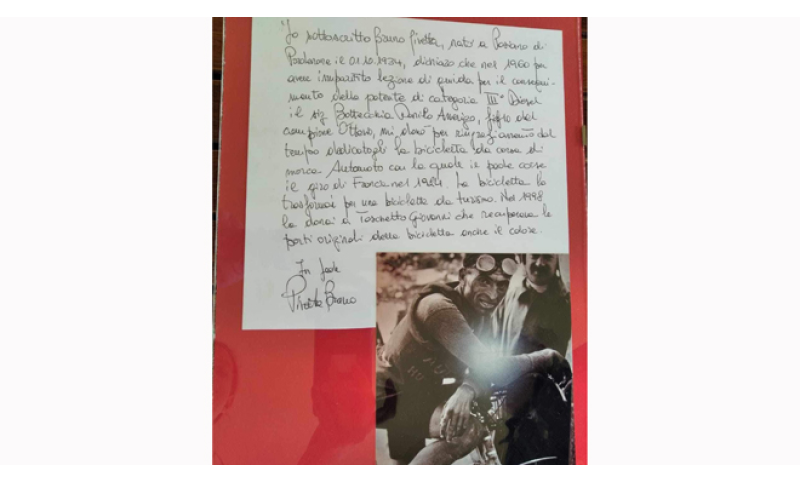 Io sottoscritto Bruno Piretta, nato a Porrano di
Pordenone il 01.10.1934, dichiaro che nel 1960 per
aver impartito lezione di guida per il consegui-
mento della patente di categoria IIIª Diesel
il sig Bottecchia Danilo Amerigo, figlio del
campione Ottavio, mi donò per ringraziamento del
tempo dedicatogli la bicicletta da corsa di
marca Automoto con la quale il padre corse
il giro di Francia nel 1924. La bicicletta la
trasformai per una bicicletta da turismo. Nel 1998
la donai a Toschetto Giovanni che recuperava le
parti originali della bicicletta anche il colore.
In fede
Piretta Bruno